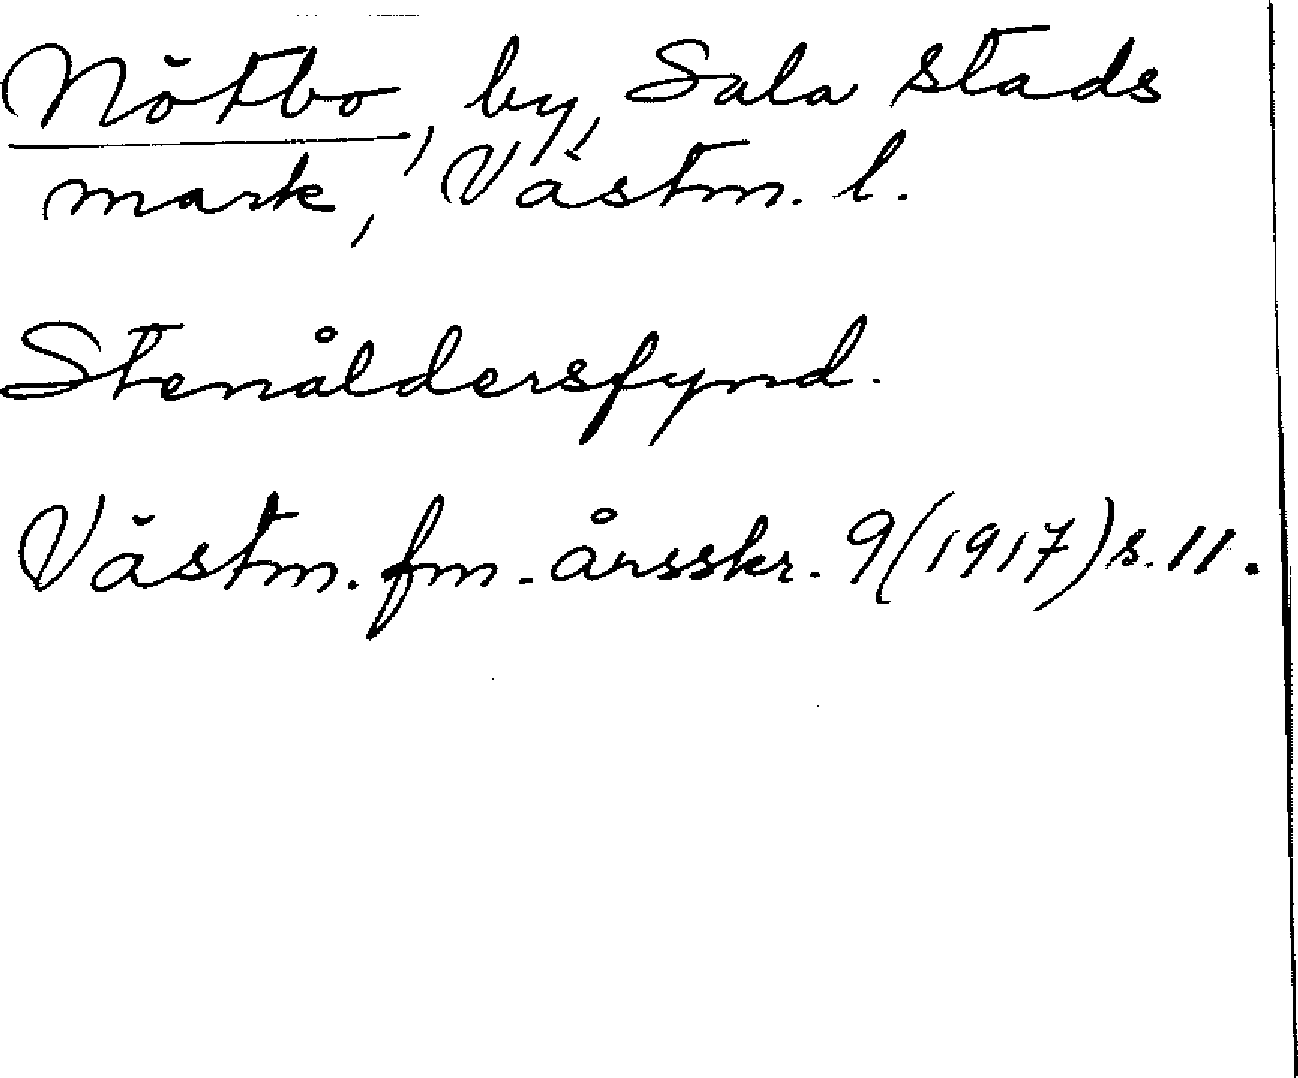 Nötbo, by, Sala stads
mark, Västm. l.
Stenåldersfynd.
Västm. fm. årsskr. 9(1917) s. 11.